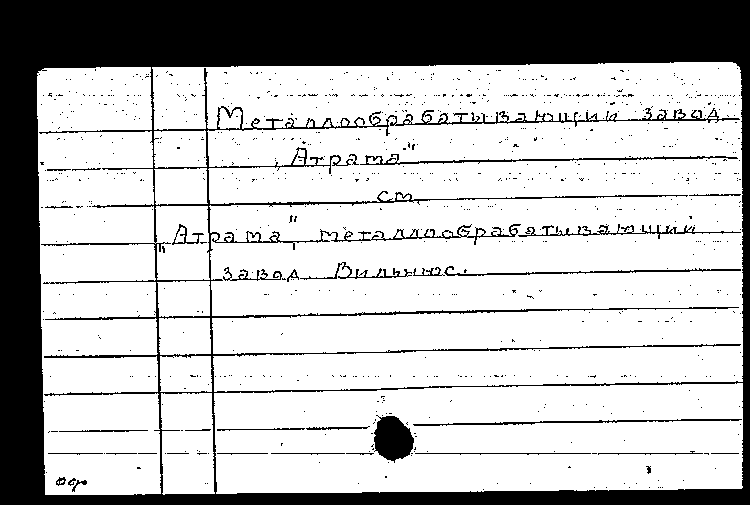 Металлообрабатывающий завод
„Атрама"
см.
„Атрама", металлообрабатывающий
завод. Вильнюс.